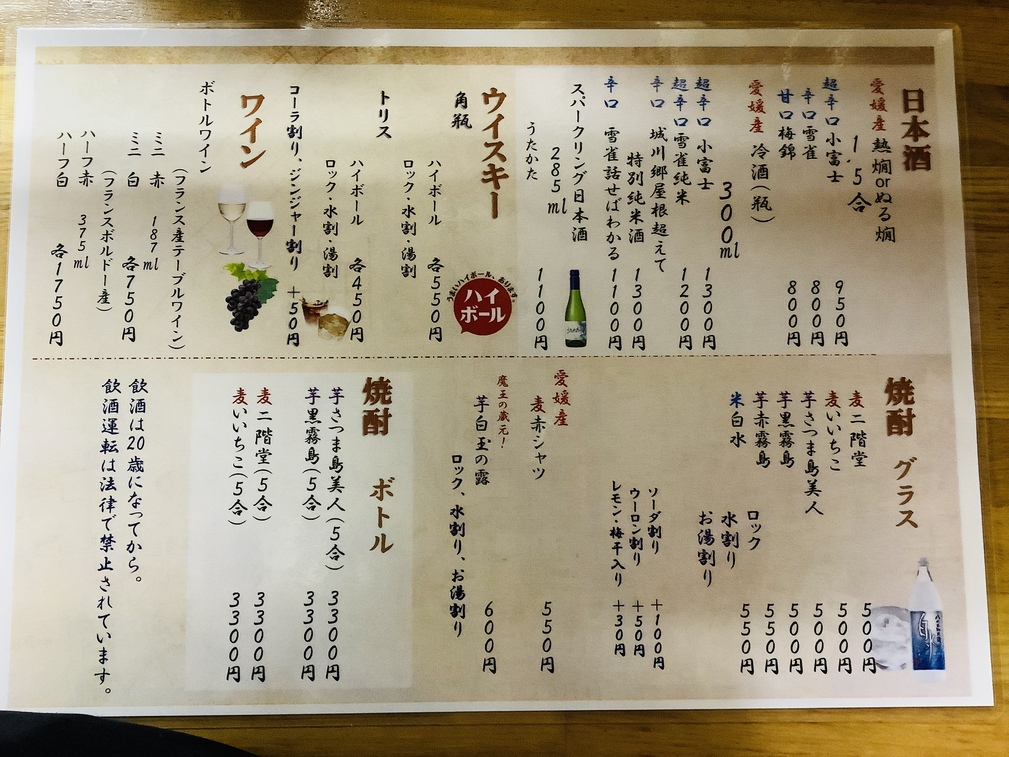 日本酒
愛媛産 熱燗orぬる燗
1.5合
超辛口 小富士 950円
辛口 雪雀 800円
甘口 梅錦 800円
愛媛産 冷酒(瓶)
300ml
超辛口 小富士 1300円
超辛口 雪雀純米 1200円
辛口 城川郷屋根超えて
特別純米酒 1300円
辛口 雪雀話せばわかる 1100円
スパークリング日本酒
285ml
うたかた 1100円
ウイスキー
角瓶
ハイボール
ロック・水割・湯割
各550円
うまいハイボール、あります。
ハイ
ボール
トリス
ハイボール
ロック・水割・湯割
各450円
コーラ割り、ジンジャー割り +50円
ワイン
ボトルワイン
(フランス産テーブルワイン)
ミニ 赤 187ml
ミニ 白 各750円
(フランスボルドー産)
ハーフ赤 375ml
ハーフ白 各1750円
焼酎 グラス
麦 二階堂 500円
麦 いいちこ 500円
芋 さつま島美人 500円
芋 黒霧島 500円
芋 赤霧島 550円
米 白水 550円
ロック
水割り
お湯割り
ソーダ割り +100円
ウーロン割り +50円
レモン・梅干入り +30円
愛媛産
麦 赤シャツ 550円
魔王の蔵元!
芋 白玉の露 600円
ロック、水割り、お湯割り
焼酎 ボトル
芋 さつま島美人(5合) 3300円
芋 黒霧島(5合) 3300円
麦 二階堂(5合) 3300円
麦 いいちこ(5合) 3300円
飲酒は20歳になってから。
飲酒運転は法律で禁止されています。